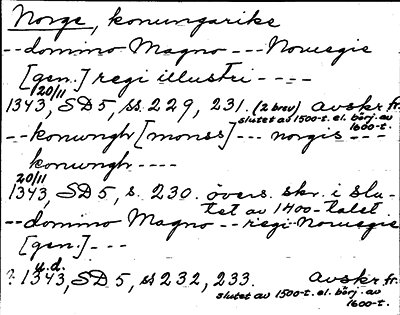 Norge, konungarike
--domino Magno --- Noruegie
[gen.] regi illustri ----
20/11
1343, SD 5, ss. 229, 231. (2 brev) avskr. fr.
slutet av 1500-t. el. börj. av
1600-t.
--konungh [monss]... norgis ---
konungh ----
20/11
1343, SD 5, s. 230. övers. skr. i slu-
tet av 1400-talet.
--domino Magno -- regi Norwegie
[gen.] ---
u.d.
? 1343, SD 5, ss 232, 233. Avskr. fr.
slutet av 1500-t. el. börj. av
1600-t.